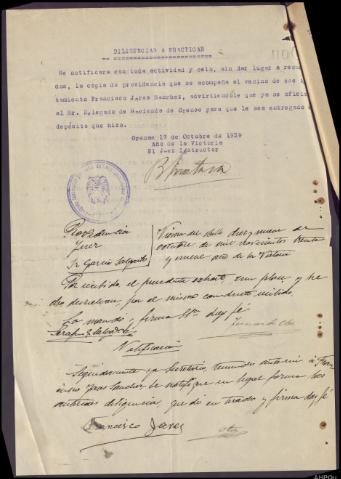 DILIGENCIAS A PRACTICAR
Se notificara con toda actividad y celo, sin dar lugar a recuer
dos, la copia de providencia que se acompaña al vecino de ese A
tamiento Francisco Jares Sanchez, advirtiendole que ya se oficia
al Sr. Delegado de Hacienda de Orense para que le sea entregado
depósito que hizo.
Orense 17 de Octubre de 1939
Año de la Victoria
El Juez Instructor
Providencia
Juez
Sr Garcia Salgado
Viana del Bollo diez y nueve de
octubre de mil novecientos treinta
y nueve año de la Victoria
Por recibido el precedente exhorto, cumplase y he
cho devuelvase por el mismo conducto recibido
Lo mandó y firma Sª doy fé
Notificación
Seguidamente yo Secretario, teniendo ante mi a Fran
cisco Jares Sanchez le notifiqué en legal forma las
diligencia, quedó enterado y firma doy fé
Francisco Jares